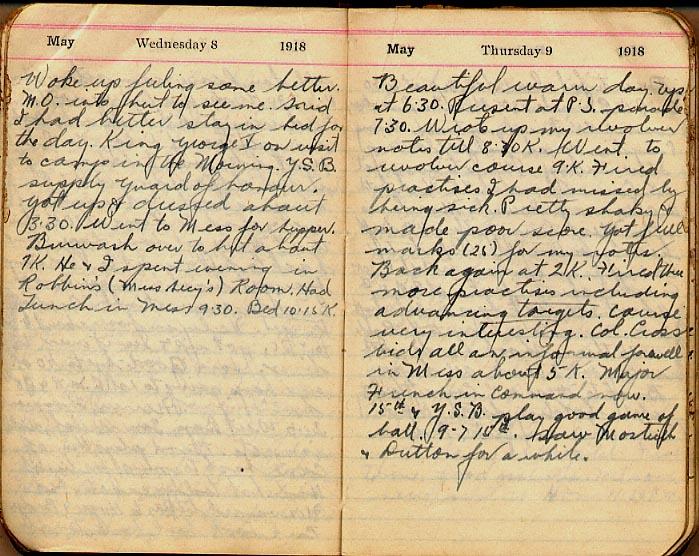 May Wednesday 8 1918
Woke up feeling some better.
M.O. into hut to see me. Said
I had better stay in bed for
the day. King George V on visit
to camp in the Morning. Y.S.B.
supply Guard of honour.
Got up & dressed about
3.30. Went to Mess for supper.
Burwash over to hut about
7K. He & I spent evening in
Robbins (Mess Secy's) Room. Had
Lunch in Mess 9.30. Bed 10.15 K.
May Thursday 9 1918
Beautiful warm day. Up
at 6.30. Present at P.S. parade
7.30. Wrote up my revolver
notes till 8.30 K. Went to
revolver course 9 K. Fired
practises I had missed by
being sick. Pretty shaky &
made poor score. Got full
marks (25) for my notes.
Back again at 2 K. Fired three
more practises including
advancing targets. Course
very interesting. Col. Cross
bids all an informal farewell
in Mess about 5 K. Major
French in command now.
15th & Y.S.B. play good game of
ball. 9-7 15th. Saw
& Dutton for a while.